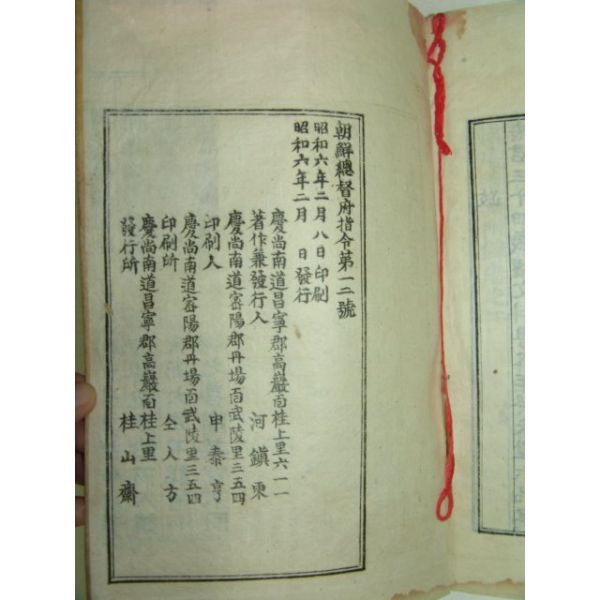 朝鮮總督府指令第一二號
昭和六年二月八日印刷
昭和六年二月　日發行
慶尚南道昌寧郡高巖面桂上里六一一
著作兼發行人　河鎭東
慶尚南道密陽郡丹場面武陵里三五四
印刷人　申泰亨
慶尚南道密陽郡丹場面武陵里三五四
印刷所　仝人方
慶尚南道昌寧郡高巖面桂上里
發行所　桂山齋